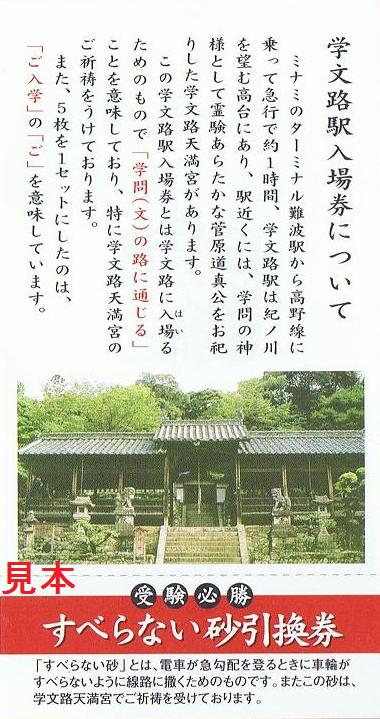 学文路駅入場券について
ミナミのターミナル難波駅から高野線に
乗って急行で約1時間、学文路駅は紀ノ川
を望む高台にあり、駅近くには、学問の神
様として霊験あらたかな菅原道真公をお祀
りした学文路天満宮があります。
この学文路駅入場券とは学文路に入場る
はい
ためのもので「学問(文)の路に通じる」
ことを意味しており、特に学文路天満宮の
ご祈祷をうけております。
また、5枚を1セットにしたのは、
「ご入学」の「ご」を意味しています。
見本
受験必勝
すべらない砂引換券
「すべらない砂」とは、電車が急勾配を登るときに車輪が
すべらないように線路に撒くためのものです。またこの砂は、
学文路天満宮でご祈祷を受けております。